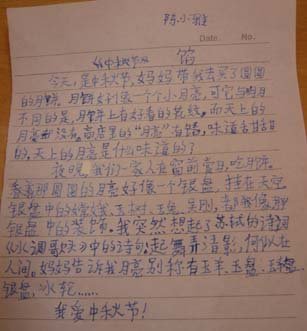 陈小雅
Date. No.
《中秋节》 馅
今天,是中秋节,妈妈带我去买了圆圆
的月饼。月饼好像一个个小月亮,可它与明月
不同的是,月饼上有好看的花纹,而天上的
月亮却没有商店里的“月亮”有
味道甜甜
的,天上的月亮是什么味道的?
夜晚,我们一家人在窗前赏月,吃月饼。
看着那圆圆的月亮好像一个银盘,挂在天空
银盘中的嫦娥、玉树、玉兔、吴刚,都我像那
银盘中的装饰。我突然想起了苏轼的诗词
《水调歌头》中的诗句:起舞弄清影,何似在
人间。妈妈告诉我月亮别称有玉羊、玉盘、
银盘、冰轮……
我爱中秋节!